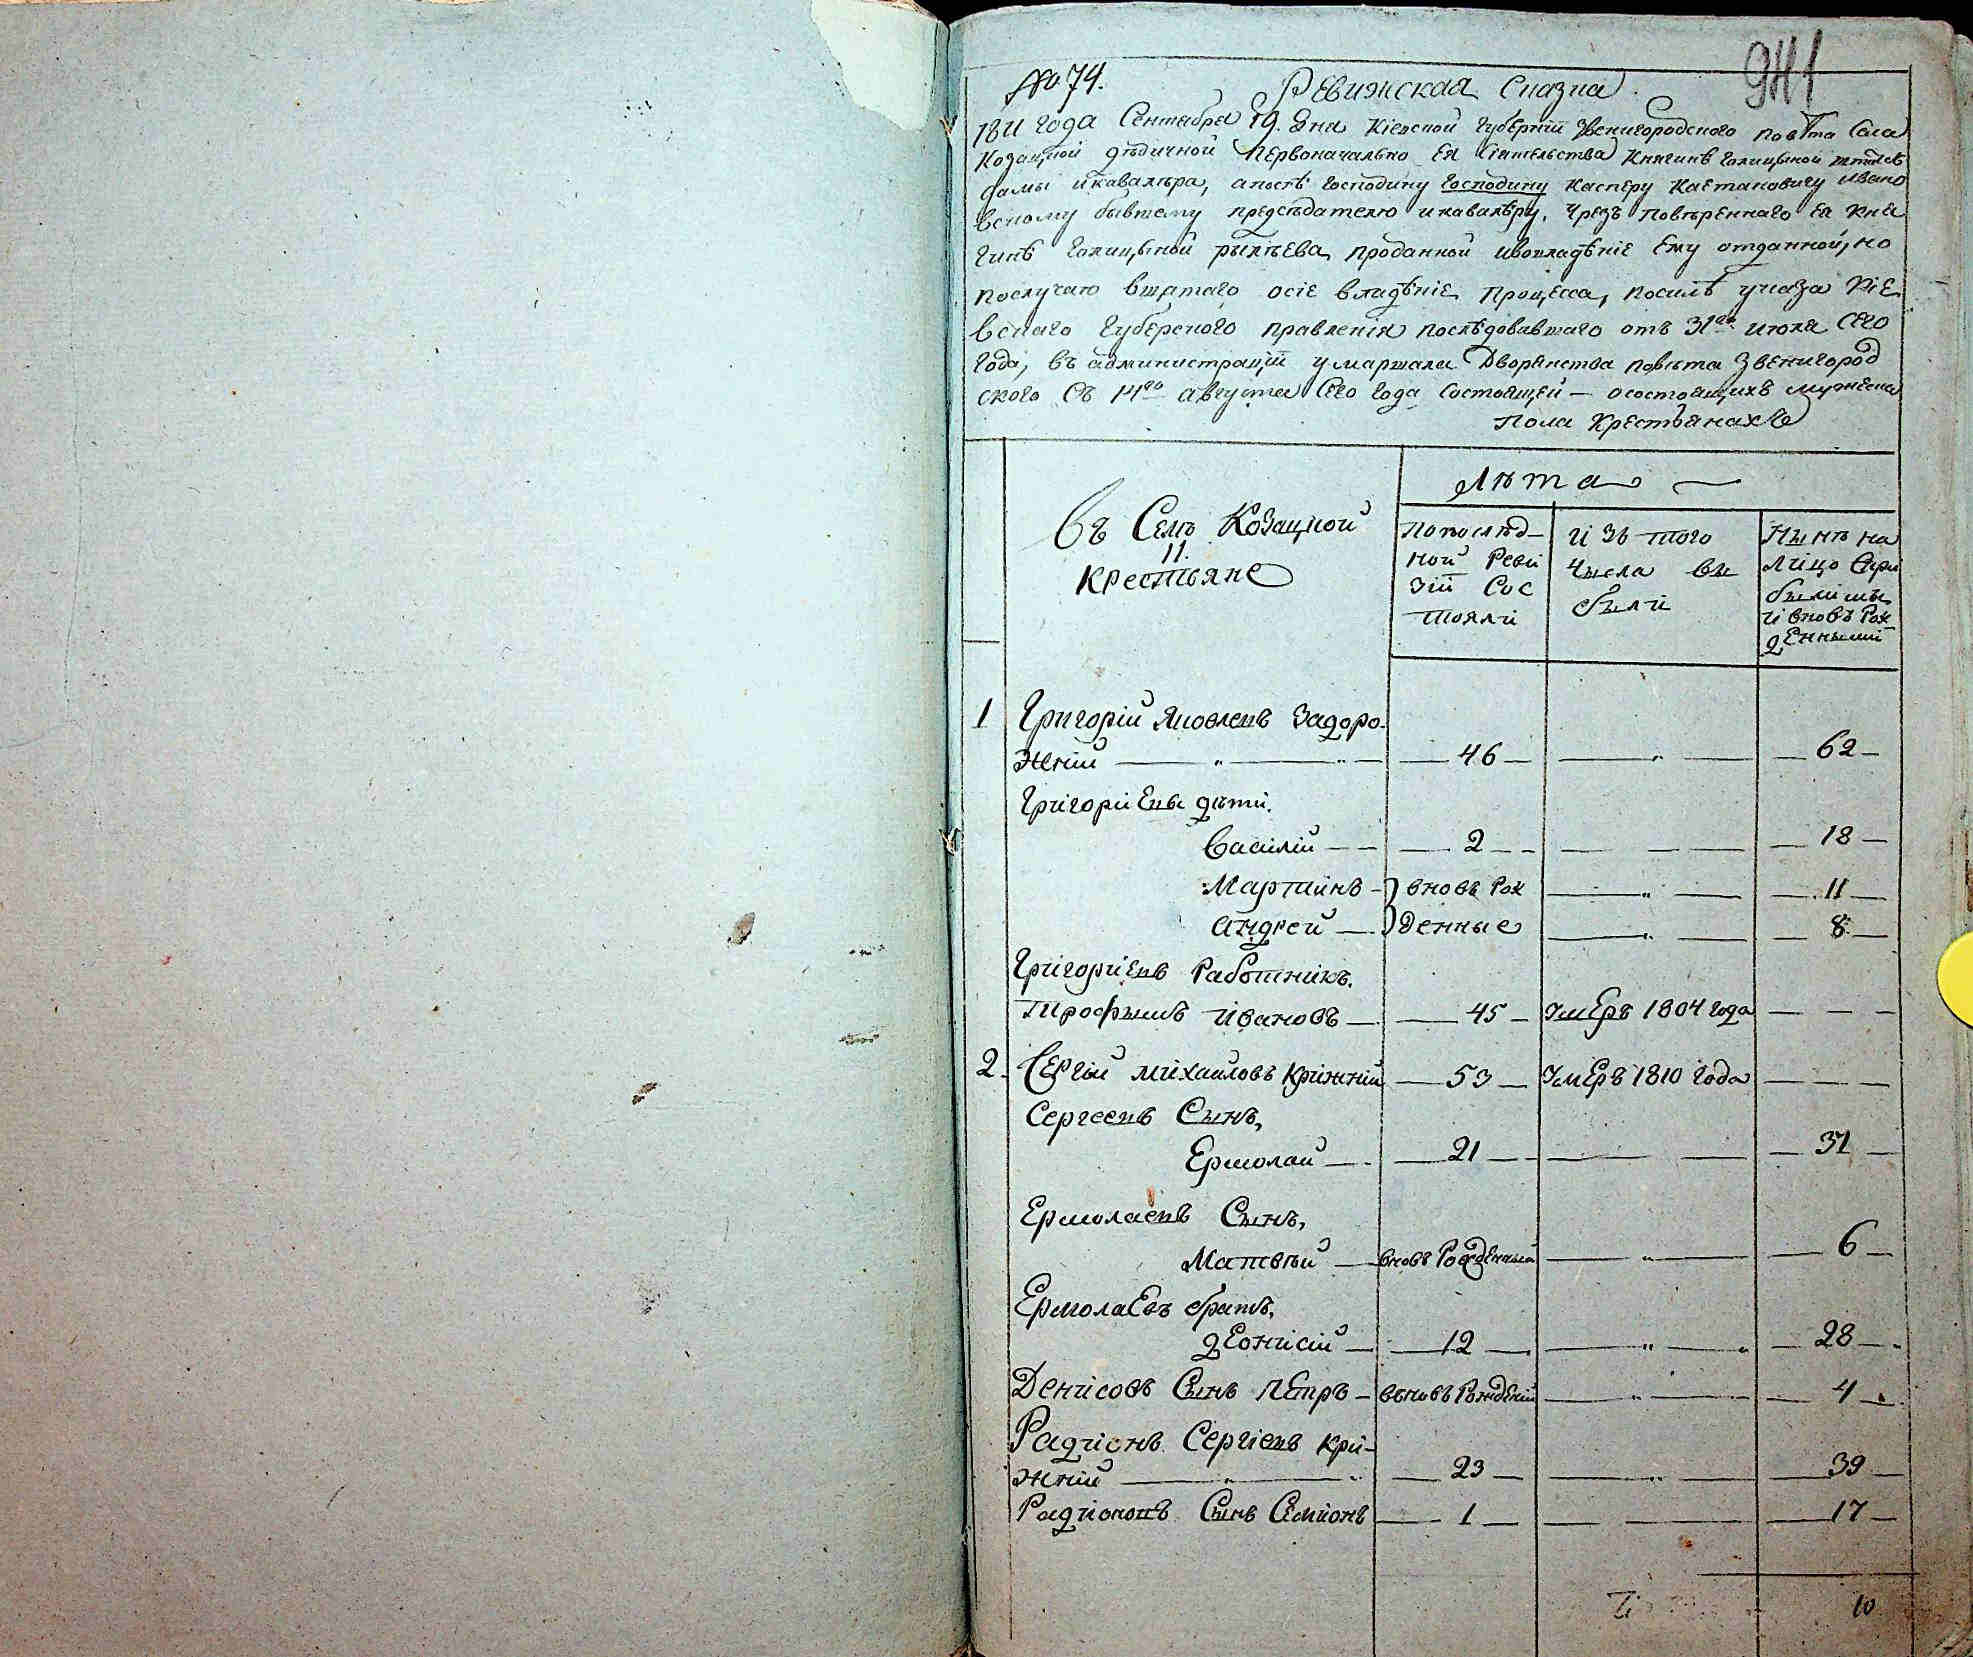 941
№ 74. Ревижская Сказка.
1811 года Сентабра 19. Дня Кіевской Губерніи Звенигородского повѣта Села
Козацкой дѣдичной первоначально Ея Сіятельства Княгинѣ Голицыной статсъ
дамы икавалѣра, апослѣ господину Господину Касперу Каетановичу Ивано
вскому бывшему предсѣдателю икавалѣру, чрезъ повѣренного Ея Кня
гинѣ Голицыной рылѣева проданной ивовладѣніе Ему отданной, но
послучаю взятаго осіе владѣніе процесса, посилѣ указа Кіе
вскаго Губерского правленія послѣдовавшаго отъ 31го июля Сего
года, въ администраціи умаршала Дворянства повѣта Звенигород
ского Съ 14го августа Сего года Состоящей — осостоящихъ мужеска
пола Крестьянахъ
Лѣта
Въ Селѣ Козацкой
11.
крестьяне
попослѣд–
ной Реви
зіи Сос
тояли
изъ того
числа вы
были
Нынѣ на
лицо Спри
былимы
и вновъ Рож
денными
1 Григорій Яковлевъ Задоро–
жній — 46 — — 62 —
Григоріевы дѣти.
Василій — — 2 — — — 18 —
Мартинъ – вновъ Рож — — 11 —
Андрей — денные — — 8 —
Григоріевъ Работникъ.
Трофимъ Ивановъ — — 45 — Умеръ 1804 года — — —
2. Сергій Михайловъ Крижній — 53 — Умеръ 1810 года — — —
Сергеевъ Сынъ,
Ермолай — — 21 — — — 37 —
Ермолаевъ Сынъ,
Матвѣй — вновъ Рожденный — — 6 —
Ермолаевъ братъ,
Деонисій — — 12 — — — 28 —
Денисовъ Сынъ Петръ — вновъ Рожденій — — 4
Радионъ Сергіевъ Кри–
жній — 23 — — — 39 —
Радионовъ Сынъ Семионъ — 1 — — — 17 —
10